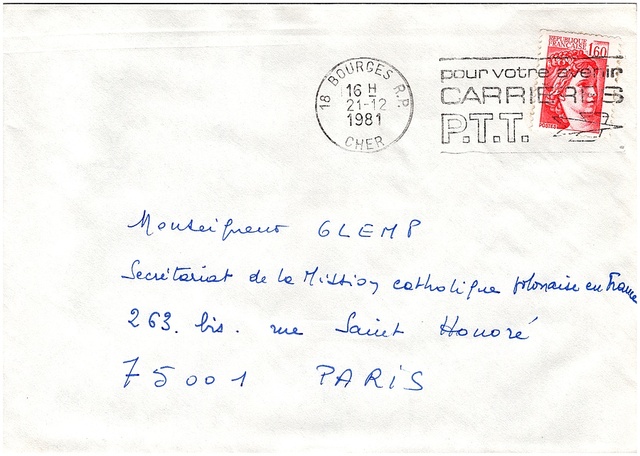 RÉPUBLIQUE
FRANÇAISE
1,60
18 BOURGES R.P.
16 H
21-12
1981
CHER
pour votre avenir
CARRIERES
P.T.T.
POSTES
Monseigneur GLEMP
Secrétariat de la Mission catholique polonaise en France
263. bis. rue Saint Honoré
75001 PARIS